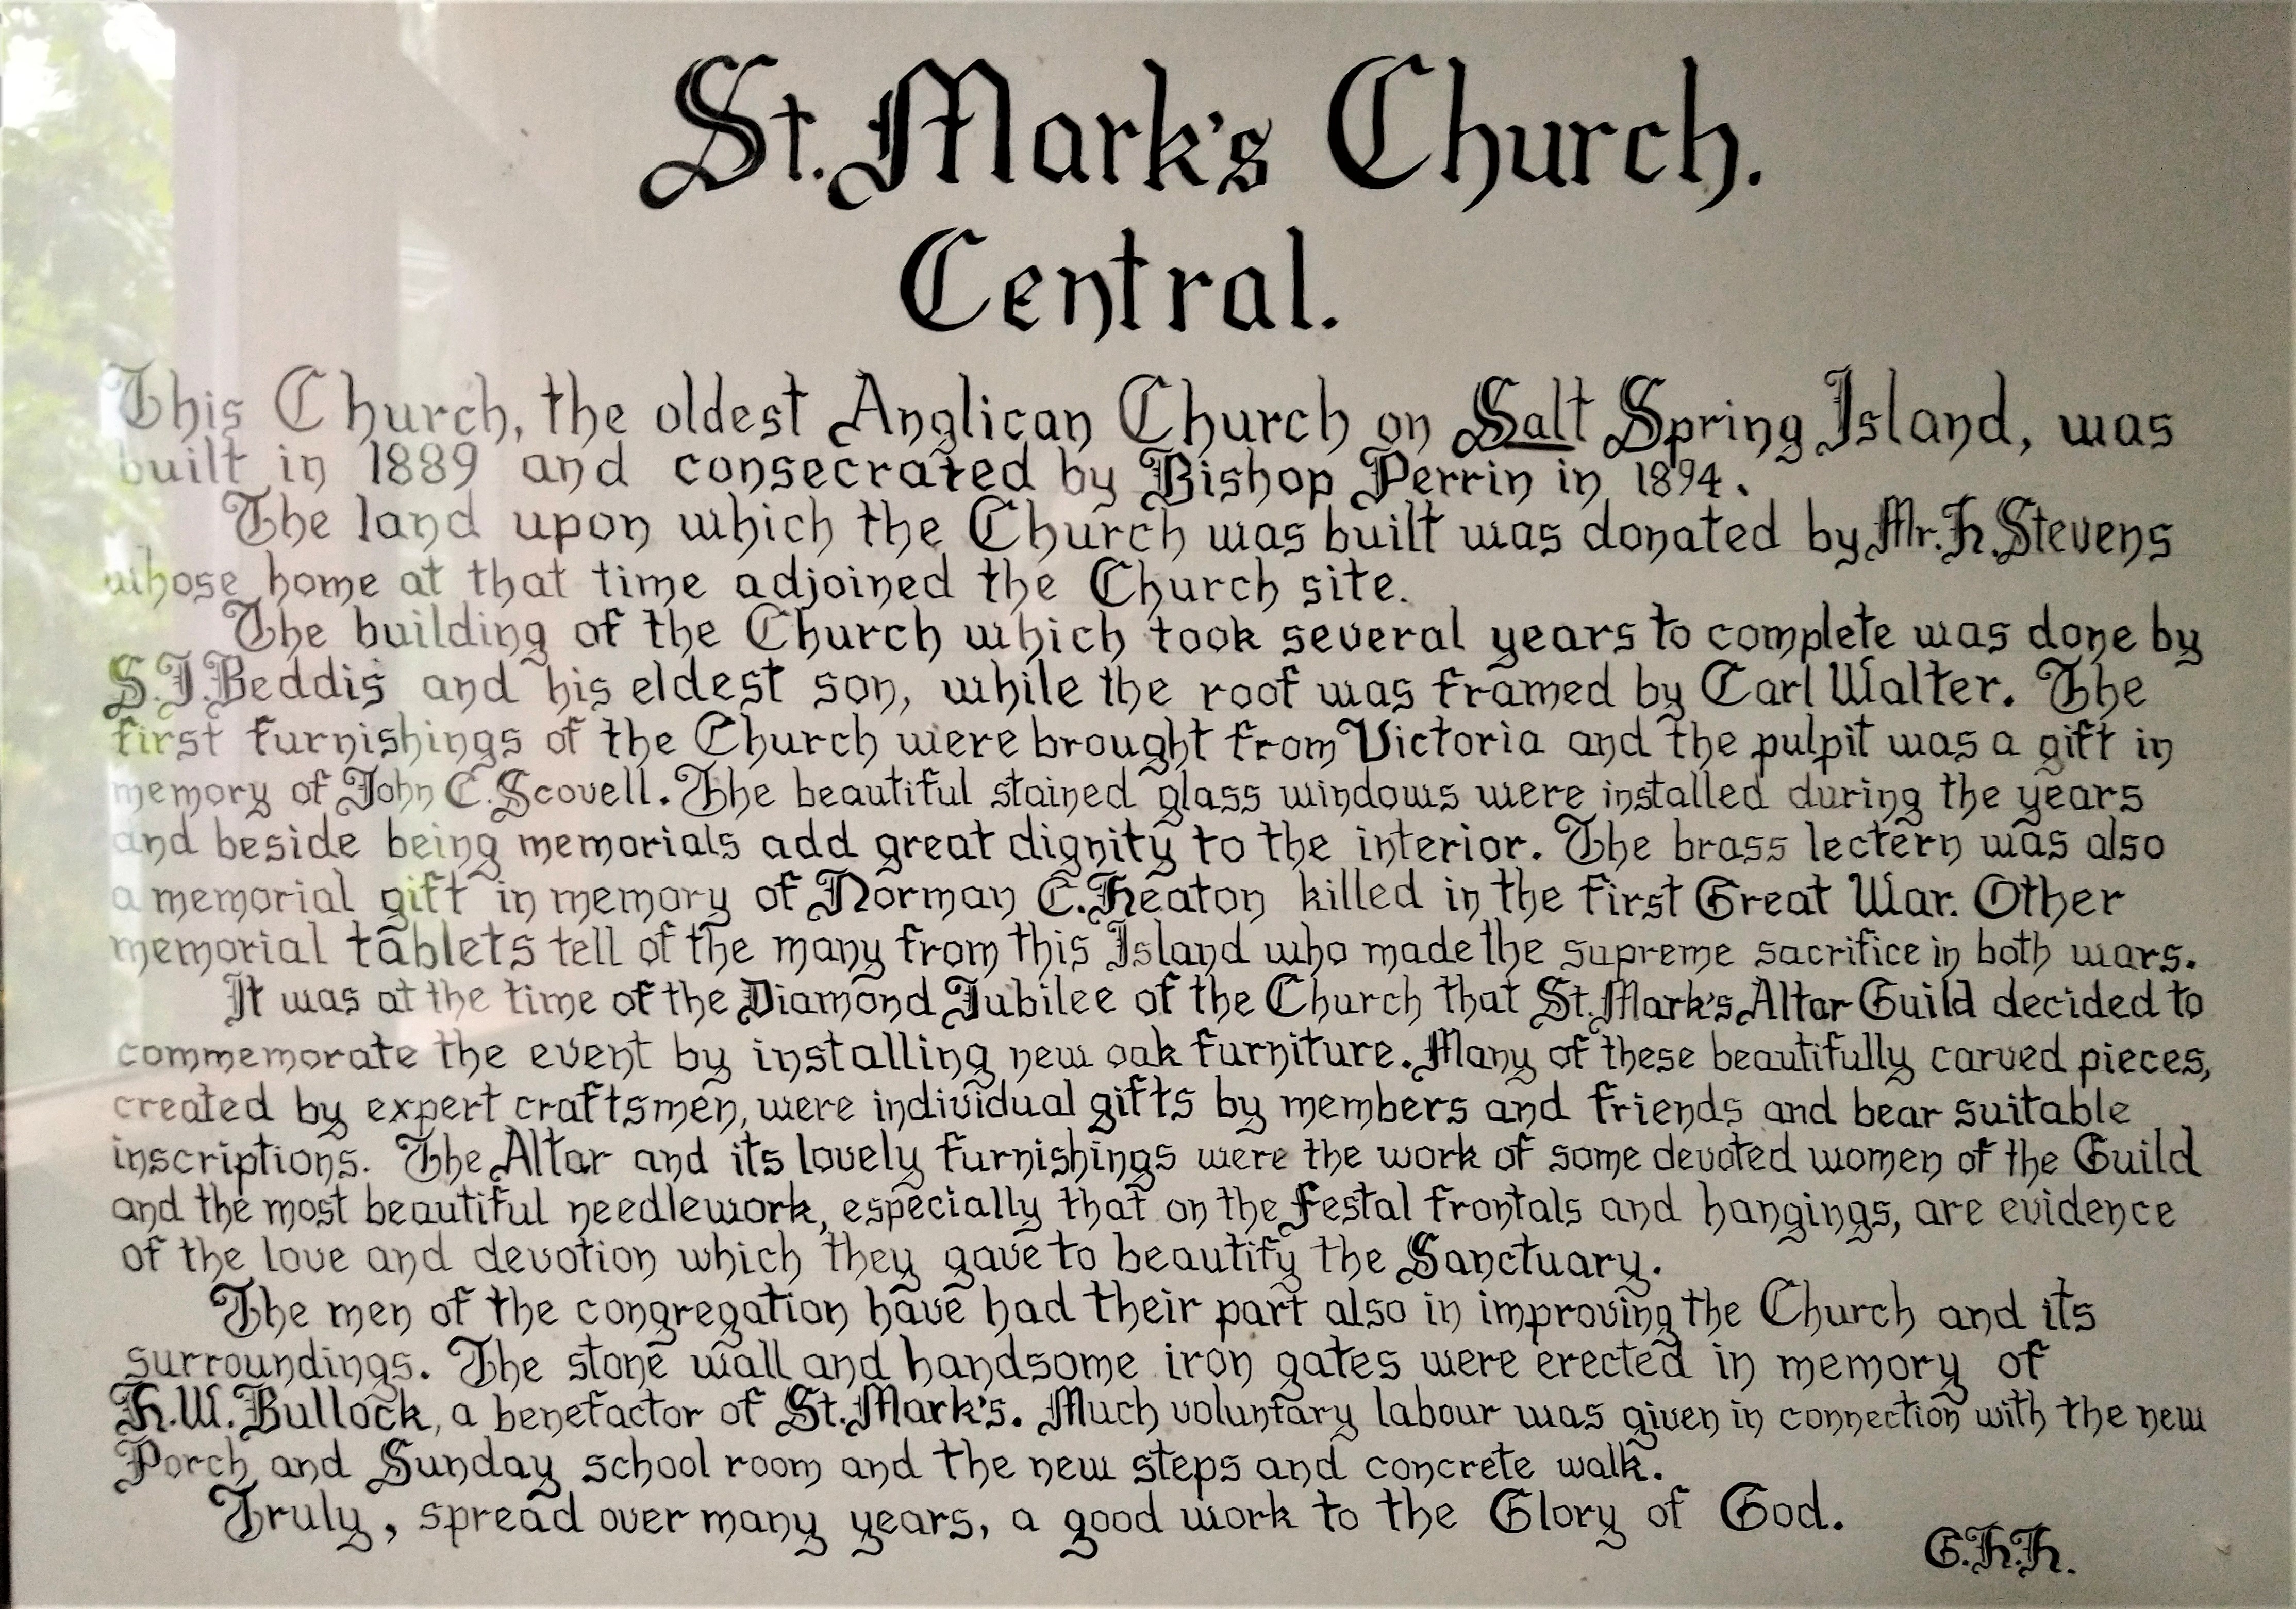 St. Mark's Church.
Central.
This Church, the oldest Anglican Church on Salt Spring Island, was
built in 1889 and consecrated by Bishop Perrin in 1894.
The land upon which the Church was built was donated by Mr. H. Stevens
whose home at that time adjoined the Church site.
The building of the Church which took several years to complete was done by
S.J. Beddis and his eldest son, while the roof was framed by Carl Walter. The
first furnishings of the Church were brought from Victoria and the pulpit was a gift in
memory of John C. Scovell. The beautiful stained glass windows were installed during the years
and beside being memorials add great dignity to the interior. The brass lectern was also
a memorial gift in memory of Norman C. Heaton killed in the first Great War. Other
memorial tablets tell of the many from this Island who made the supreme sacrifice in both wars.
It was at the time of the Diamond Jubilee of the Church that St. Mark's Altar Guild decided to
commemorate the event by installing new oak furniture. Many of these beautifully carved pieces,
created by expert craftsmen, were individual gifts by members and friends and bear suitable
inscriptions. The Altar and its lovely furnishings were the work of some devoted women of the Guild
and the most beautiful needlework, especially that on the Festal frontals and hangings, are evidence
of the love and devotion which they gave to beautify the Sanctuary.
The men of the congregation have had their part also in improving the Church and its
surroundings. The stone wall and handsome iron gates were erected in memory of
H.W. Bullock, a benefactor of St. Mark's. Much voluntary labour was given in connection with the new
Porch and Sunday school room and the new steps and concrete walk.
Truly, spread over many years, a good work to the Glory of God.
G.H.H.